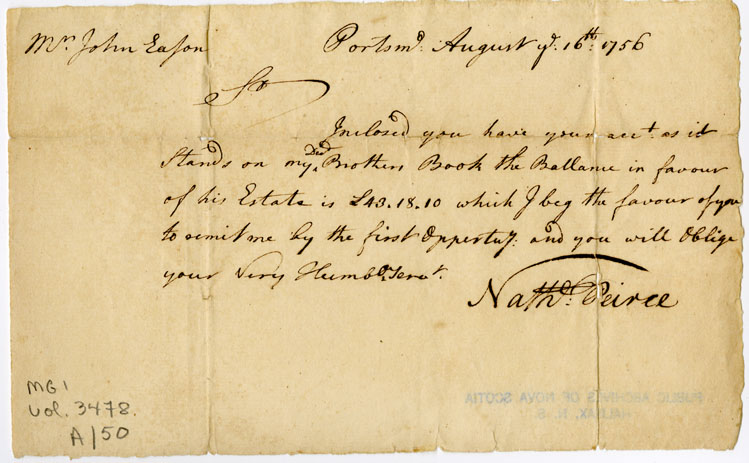 Mr. John Eason
Portsmo. August ye. 16th. 1756
Sr
Inclosed you have your acct. as it
Stands on my Decd Brothers Book the Ballance in favour
of his Estate is £43.18.10 which I beg the favour of you
to remit me by the first Oppertuy. and you will Oblige
your Very Humble Servt.
Nathl. Peirce
MG1
vol. 3478.
A/50
PUBLIC ARCHIVES OF NOVA SCOTIA
HALIFAX, N. S.